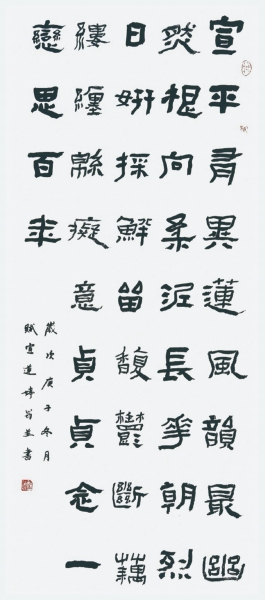 宣平有異蓮風韻最幽
然根向柔泥長花朝烈
日妍採鮮留馥鬱斷藕
縷纏綿癡意貞貞念一
戀思百年
歲次庚子冬月
賦宣蓮 並書